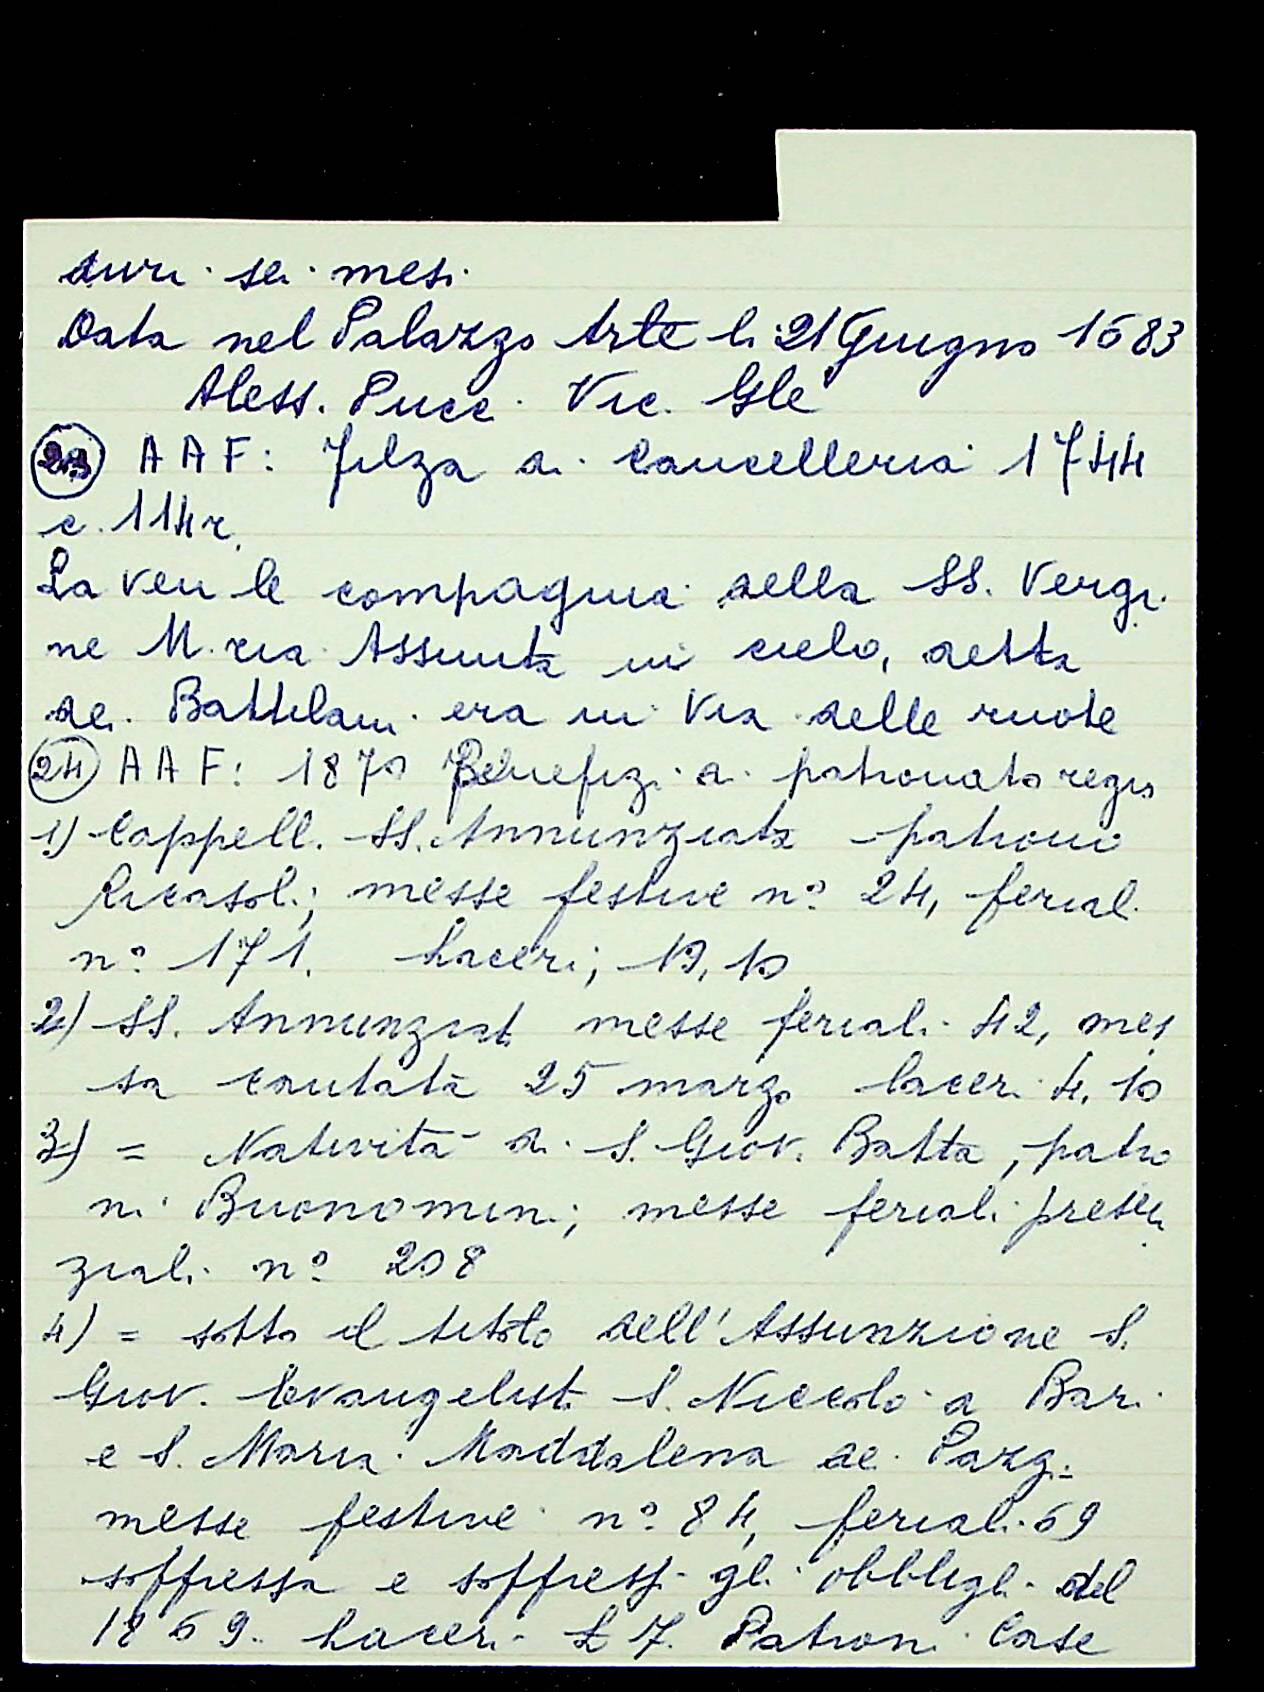 duri sei mesi
Data nel Palazzo Arte li 21 Giugno 1683
Aless. Pucci Vic. Gle
23 A A F: Filza di Cancelleria 1744
c. 114r.
La ven le compagnia della SS. Vergi
ne M. ria Assunta in cielo, detta
dei Battilani era in Via delle ruote
24 A A F: 1870 Benefizi di patronato regio
1) Cappell. SS. Annunziata patrono
Ricasoli; messe festive n° 24, feriali
n° 171. Laceri; 19, 10
2) SS. Annunziat. messe feriali 42, mes
sa cantata 25 marzo laceri 4, 10
3) = Natività di S. Giov. Batta, patro
ni Buonomini; messe feriali presen
ziali n° 208
4) = sotto il titolo dell'Assunzione S.
Giov. Evangelist. S. Niccolò a Bari
e S. Maria Maddalena de Pazzi =
messe festive n° 84, feriali 69
soffressa e soffressi gli obblighi del
1869. Laceri £ 7. Patroni Case